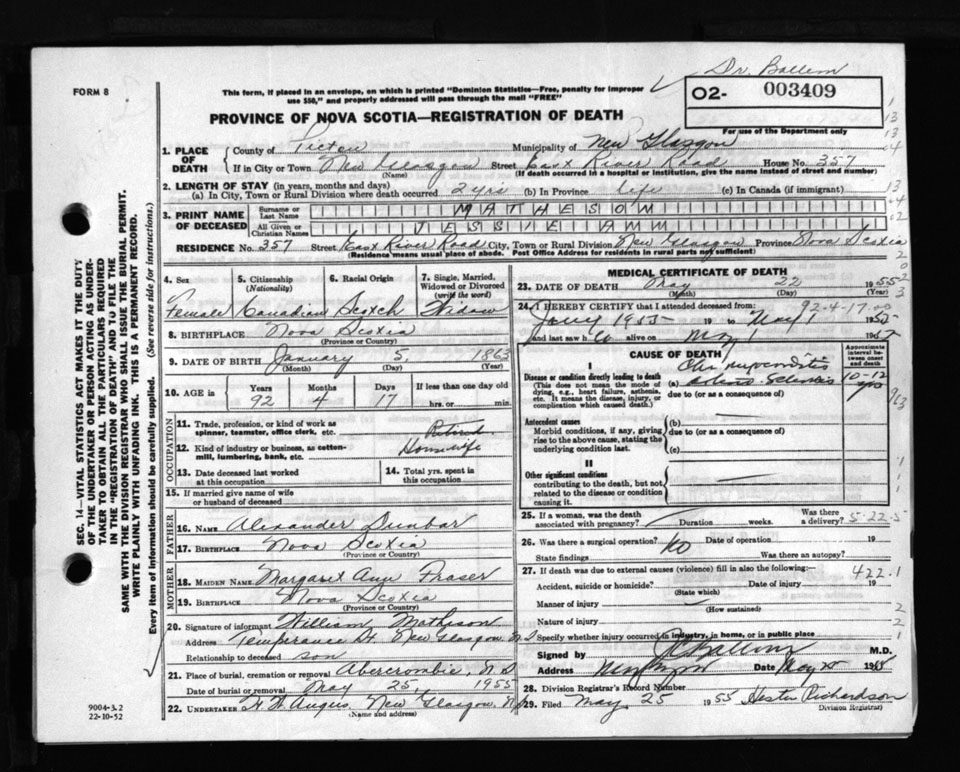 Dr. Ballem
FORM 8
This form, if placed in an envelope, on which is printed "Dominion Statistics—Free, penalty for improper
use $50," and properly addressed will pass through the mail "FREE"
O2- 003409
For use of the Department only
PROVINCE OF NOVA SCOTIA—REGISTRATION OF DEATH
1. PLACE OF DEATH
County of Pictou Municipality of New Glasgow
If in City or Town New Glasgow Street East River Road House No. 357
(Name) (If death occurred in a hospital or institution, give the name instead of street and number)
2. LENGTH OF STAY (in years, months and days)
(a) In City, Town or Rural Division where death occurred 2 yrs (b) In Province life (c) In Canada (if immigrant)
3. PRINT NAME OF DECEASED
Surname or Last Name MATHESON
All Given or Christian Names JESSIE ANN
RESIDENCE No. 357 Street East River Road City, Town or Rural Division New Glasgow Province Nova Scotia
(Residence means usual place of abode. Post Office Address for residents in rural parts not sufficient)
4. Sex
Female
5. Citizenship (Nationality)
Canadian
6. Racial Origin
Scotch
7. Single, Married, Widowed or Divorced (write the word)
Widow
8. BIRTHPLACE Nova Scotia
(Province or Country)
9. DATE OF BIRTH January 5, 1863
(Month) (Day) (Year)
10. AGE in Years Months Days If less than one day old
92 4 17 hrs. or min.
OCCUPATION
11. Trade, profession, or kind of work as
spinner, teamster, office clerk, etc. Retired
12. Kind of industry or business, as cotton-
mill, lumbering, bank, etc. Housewife
13. Date deceased last worked
at this occupation
14. Total yrs. spent in
this occupation
15. If married give name of wife
or husband of deceased
FATHER
16. NAME Alexander Dunbar
17. BIRTHPLACE Nova Scotia
(Province or Country)
MOTHER
18. MAIDEN NAME Margaret Ann Fraser
19. BIRTHPLACE Nova Scotia
(Province or Country)
20. Signature of informant William Matheson
Address Temperance St. New Glasgow N.S
Relationship to deceased son
21. Place of burial, cremation or removal Abercrombie, N S
Date of burial or removal May 25, 1955
22. UNDERTAKER H W Angus, New Glasgow, N.S.
(Name and address)
MEDICAL CERTIFICATE OF DEATH
23. DATE OF DEATH May 22 1955
(Month) (Day) (Year)
92-4-17
24. I HEREBY CERTIFY that I attended deceased from:
1955 19 to May 19
and last saw h alive on May 19
CAUSE OF DEATH
Approximate interval between onset and death
I
Disease or condition directly leading to death
(This does not mean the mode of
dying, e.g., heart failure, asthenia,
etc. It means the disease, injury, or
complication which caused death.)
Chr myocarditis
(a) 10-12 yrs
due to (or as a consequence of)
Antecedent causes
Morbid conditions, if any, giving
rise to the above cause, stating the
underlying condition last.
(b)
due to (or as a consequence of)
(c)
II
Other significant conditions
contributing to the death, but not
related to the disease or condition
causing it.
25. If a woman, was the death
associated with pregnancy? Duration weeks. Was there a delivery? 5-22-5
26. Was there a surgical operation? No Date of operation 19
State findings Was there an autopsy?
27. If death was due to external causes (violence) fill in also the following:— 422.1
Accident, suicide or homicide? Date of injury 19
(State which)
Manner of injury
(How sustained)
Nature of injury
Specify whether injury occurred in industry, in home, or in public place
Signed by Ballem M.D.
Address New Glasgow Date May 19
28. Division Registrar's Record Number
29. Filed May 25 1955 Hester Richardson
(Division Registrar)
9004-3.2
22-10-52
SEC. 14—VITAL STATISTICS ACT MAKES IT THE DUTY
OF THE UNDERTAKER OR PERSON ACTING AS UNDER-
TAKER TO OBTAIN ALL THE PARTICULARS REQUIRED
IN THE "REGISTRATION OF DEATH" AND TO FILE THE
SAME WITH THE DIVISION REGISTRAR WHO SHALL ISSUE THE BURIAL PERMIT.
WRITE PLAINLY WITH UNFADING INK. THIS IS A PERMANENT RECORD.
Every item of information should be carefully supplied. (See reverse side for instructions.)